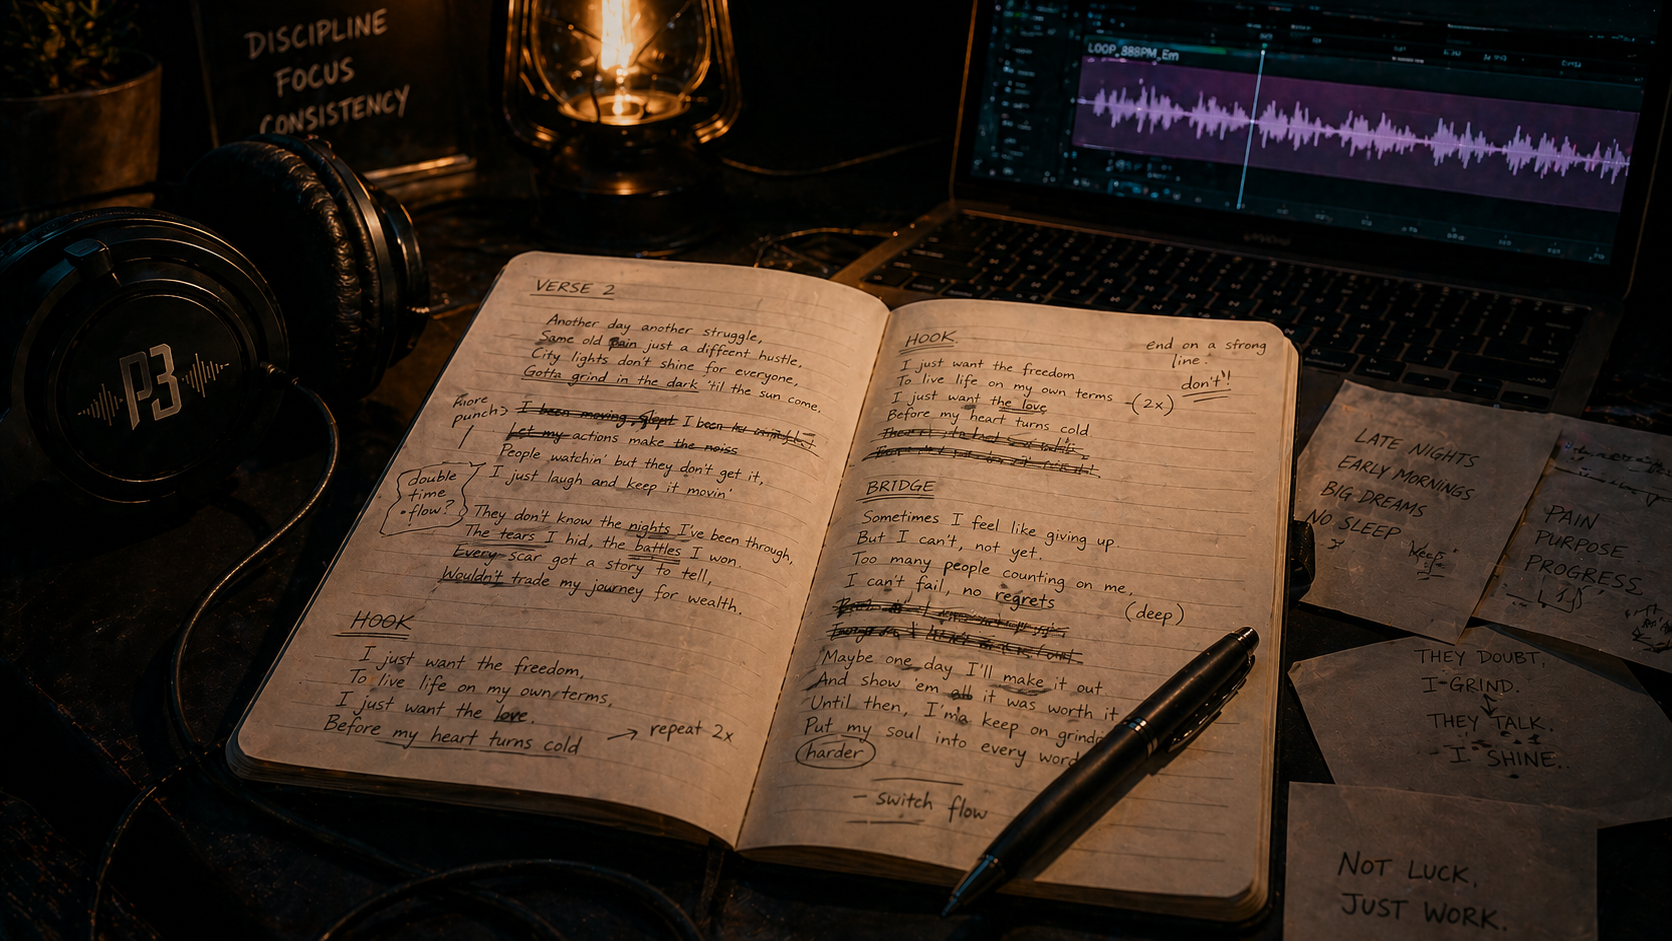 DISCIPLINE
FOCUS
CONSISTENCY
P3
LOOP_888PM_Em
VERSE 2
Another day another struggle,
Same old pain just a diffcent hustle,
City lights don't shine for everyone,
Gotta grind in the dark 'til the sun come.
more
punch>
I been moving, I been
Let my actions make the noiss
People watchin' but they don't get it,
I just laugh and keep it movin'
double
time
flow?
They don't know the nights I've been through,
The tears I hid, the battles I won.
Every scar got a story to tell,
Wouldn't trade my journey for wealth.
HOOK
I just want the freedom,
To live life on my own terms,
I just want the love.
Before my heart turns cold
→ repeat 2x
HOOK
end on a strong
line.
don't!
I just want the freedom
To live life on my own terms
I just want the love
-(2x)
Before my heart turns cold
BRIDGE
Sometimes I feel like giving up.
But I can't, not yet.
Too many people counting on me,
I can't fail, no regrets
(deep)
Maybe one day I'll make it out.
And show 'em all it was worth it
Until then, I'ma keep on grind
Put my soul into every word
harder
- switch flow
LATE NIGHTS
EARLY MORNINGS
BIG DREAMS
NO SLEEP
PAIN
PURPOSE
PROGRESS
THEY DOUBT,
I GRIND.
THEY TALK.
I SHINE.
NOT LUCK.
JUST WORK.